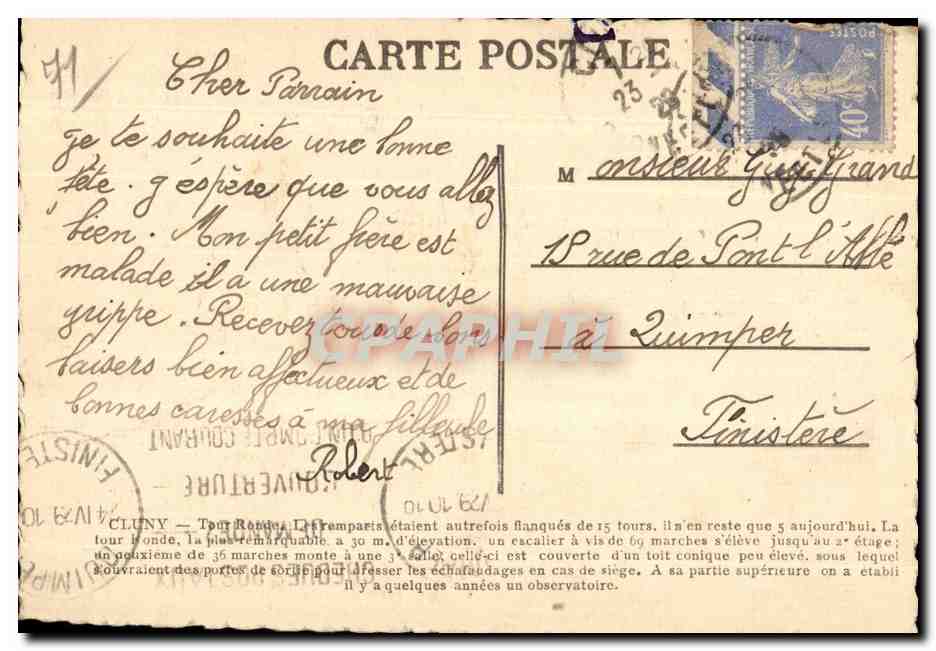 CARTE POSTALE
71
POSTES
40c
23
Cher Parrain
Je te souhaite une bonne
fête. J'espère que vous allez
bien. Mon petit frère est
malade il a une mauvaise
grippe. Recevez tous de bons
baisers bien affectueux et de
bonnes caresses à ma filleule
Robert
Monsieur Guy Grand
18 rue de Pont l'Abbé
à Quimper
Finistère
CPAPHIL
D'UN COMPTE COURANT
L'OUVERTURE
CHEQUES POSTAUX
FINISTE
24 IV 29 10
CLUNY — Tour Ronde. Les remparts étaient autrefois flanqués de 15 tours, il n'en reste que 5 aujourd'hui. La
tour Ronde, la plus remarquable, a 30 m. d'élevation. un escalier à vis de 69 marches s'élève jusqu'au 2e étage;
un deuxième de 36 marches monte à une 3e salle, celle-ci est couverte d'un toit conique peu élevé, sous lequel
s'ouvraient des portes de sortie pour dresser les échafaudages en cas de siège. A sa partie supérieure on a établi
il y a quelques années un observatoire.